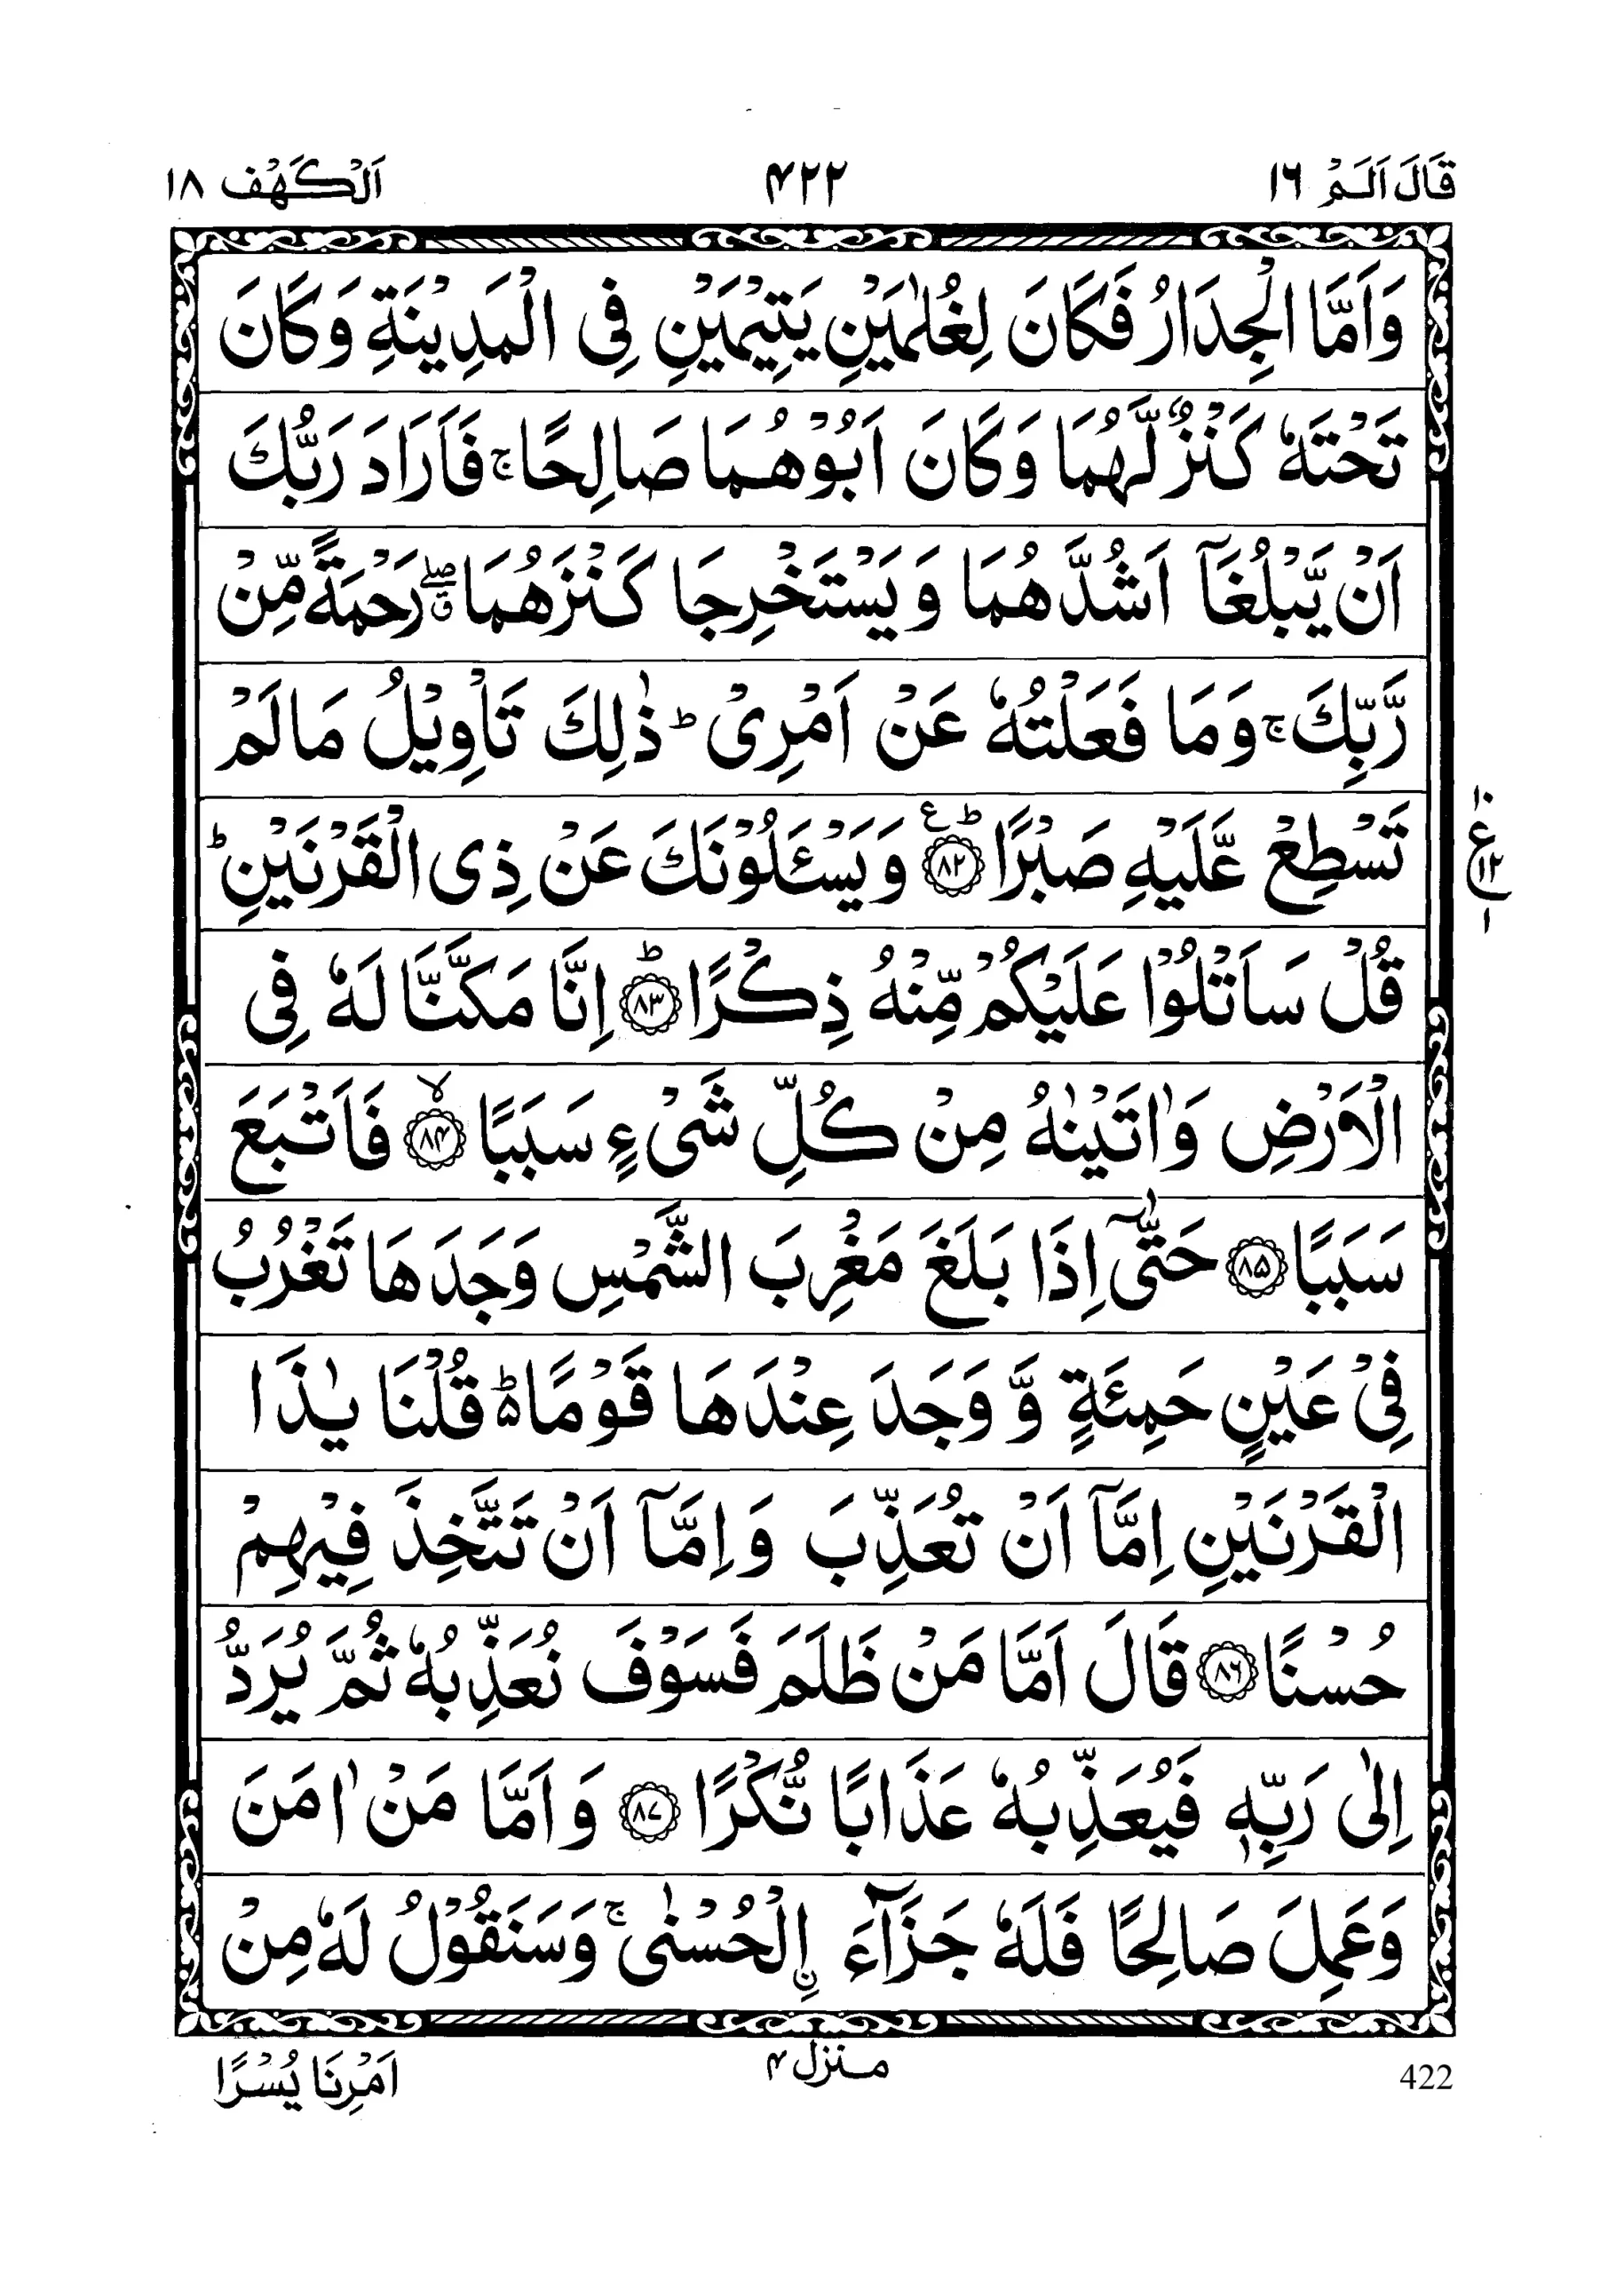 قَالَ اَلَمْ ١٦ ٤٢٢ اَلْكَهْف ١٨
وَاَمَّا الْجِدَارُ فَكَانَ لِغُلٰمَيْنِ يَتِيْمَيْنِ فِى الْمَدِيْنَةِ وَكَانَ
تَحْتَهٗ كَنْزٌ لَّهُمَا وَكَانَ اَبُوْهُمَا صَالِحًا ۚ فَاَرَادَ رَبُّكَ
اَنْ يَّبْلُغَاۤ اَشُدَّهُمَا وَيَسْتَخْرِجَا كَنْزَهُمَا ۖۗ رَحْمَةً مِّنْ
رَّبِّكَ ۚ وَمَا فَعَلْتُهٗ عَنْ اَمْرِىْ ؕ ذٰلِكَ تَاْوِيْلُ مَا لَمْ
تَسْطِعْ عَّلَيْهِ صَبْرًا ؕع ﴿٨٢﴾ وَيَسْـَٔلُوْنَكَ عَنْ ذِى الْقَرْنَيْنِ ؕ
١٠ ع ١٢ ١
قُلْ سَاَتْلُوْا عَلَيْكُمْ مِّنْهُ ذِكْرًا ؕ ﴿٨٣﴾ اِنَّا مَكَّنَّا لَهٗ فِى
الْاَرْضِ وَاٰتَيْنٰهُ مِنْ كُلِّ شَىْءٍ سَبَبًا ۙ ﴿٨٤﴾ فَاَتْبَعَ
سَبَبًا ﴿٨٥﴾ حَتّٰۤى اِذَا بَلَغَ مَغْرِبَ الشَّمْسِ وَجَدَهَا تَغْرُبُ
فِىْ عَيْنٍ حَمِئَةٍ وَّ وَجَدَ عِنْدَهَا قَوْمًا ؕ۬ قُلْنَا يٰذَا
الْقَرْنَيْنِ اِمَّاۤ اَنْ تُعَذِّبَ وَاِمَّاۤ اَنْ تَتَّخِذَ فِيْهِمْ
حُسْنًا ﴿٨٦﴾ قَالَ اَمَّا مَنْ ظَلَمَ فَسَوْفَ نُعَذِّبُهٗ ثُمَّ يُرَدُّ
اِلٰى رَبِّهٖ فَيُعَذِّبُهٗ عَذَابًا نُّكْرًا ﴿٨٧﴾ وَاَمَّا مَنْ اٰمَنَ
وَعَمِلَ صَالِحًا فَلَهٗ جَزَآءَ ۨالْحُسْنٰى ۚ وَسَنَقُوْلُ لَهٗ مِنْ
422 منزل ٤ اَمْرِنَا يُسْرًا